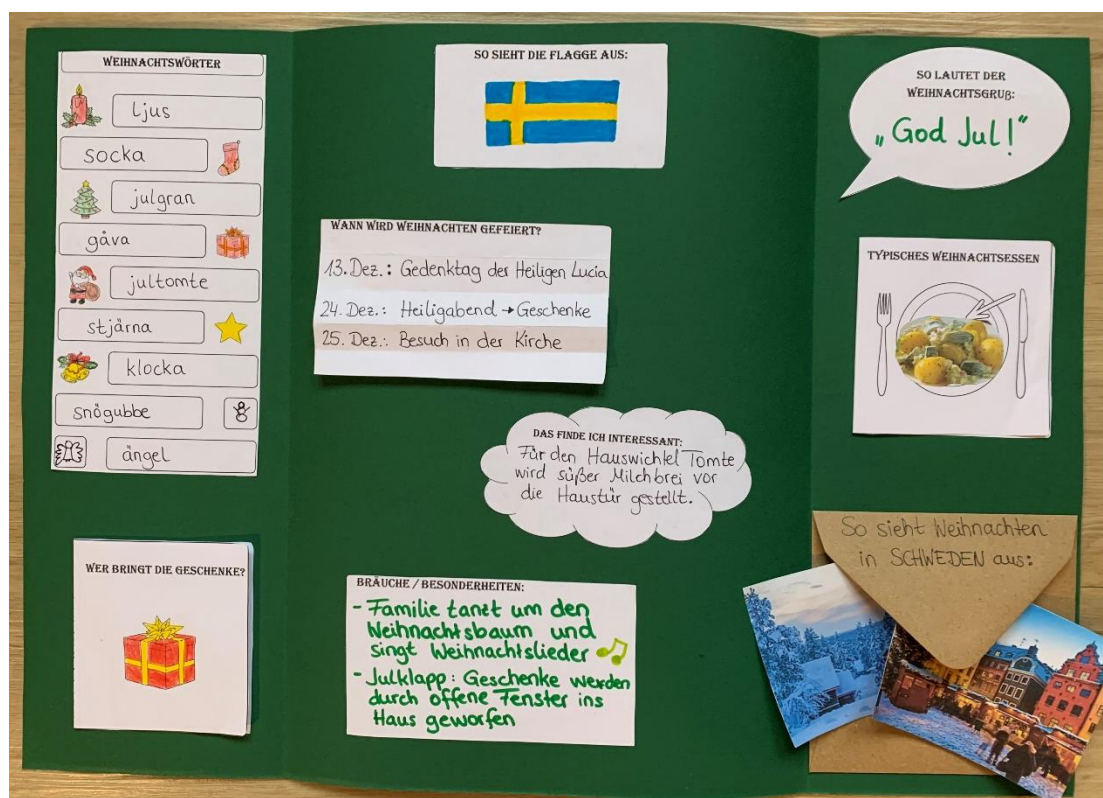 WEIHNACHTSWÖRTER
ljus
socka
julgran
gåva
jultomte
stjärna
klocka
snögubbe
ängel
WER BRINGT DIE GESCHENKE?
SO SIEHT DIE FLAGGE AUS:
WANN WIRD WEIHNACHTEN GEFEIERT?
13. Dez.: Gedenktag der Heiligen Lucia
24. Dez.: Heiligabend → Geschenke
25. Dez.: Besuch in der Kirche
DAS FINDE ICH INTERESSANT:
Für den Hauswichtel Tomte
wird süßer Milchbrei vor
die Haustür gestellt.
BRÄUCHE / BESONDERHEITEN:
- Familie tanzt um den
Weihnachtsbaum und
singt Weihnachtslieder
- Julklapp: Geschenke werden
durch offene Fenster ins
Haus geworfen
SO LAUTET DER
WEIHNACHTSGRUß:
„God Jul!“
TYPISCHES WEIHNACHTSESSEN
So sieht Weihnachten
in SCHWEDEN aus: